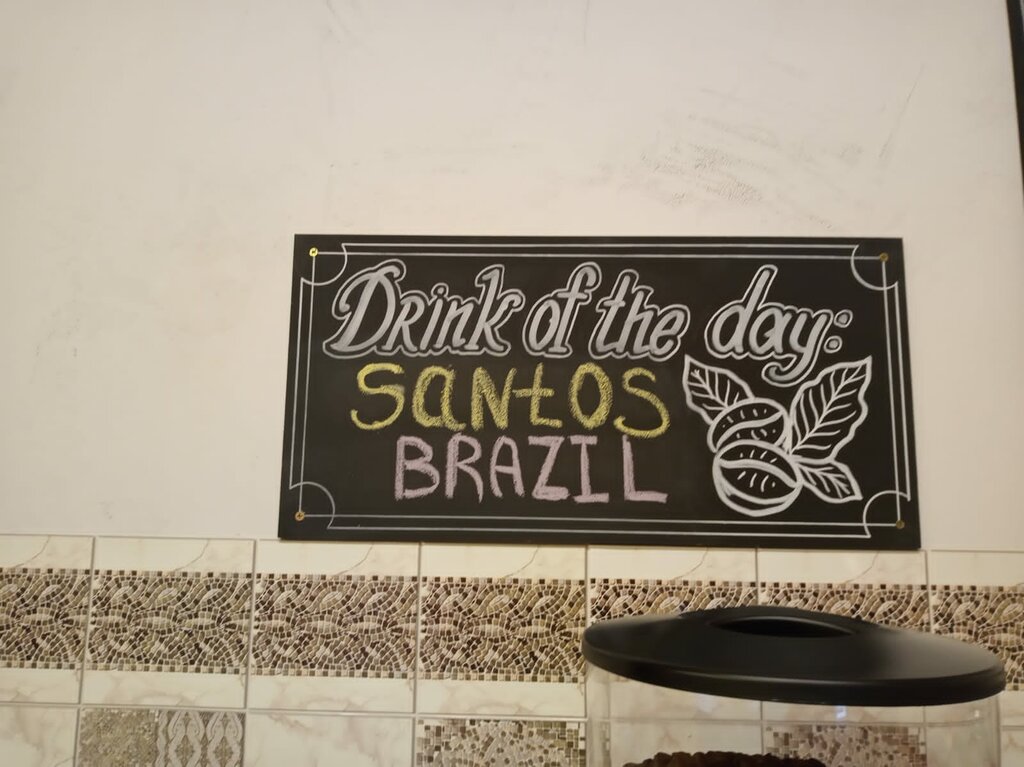 Drink of the day:
SANtOS
BRAZIL